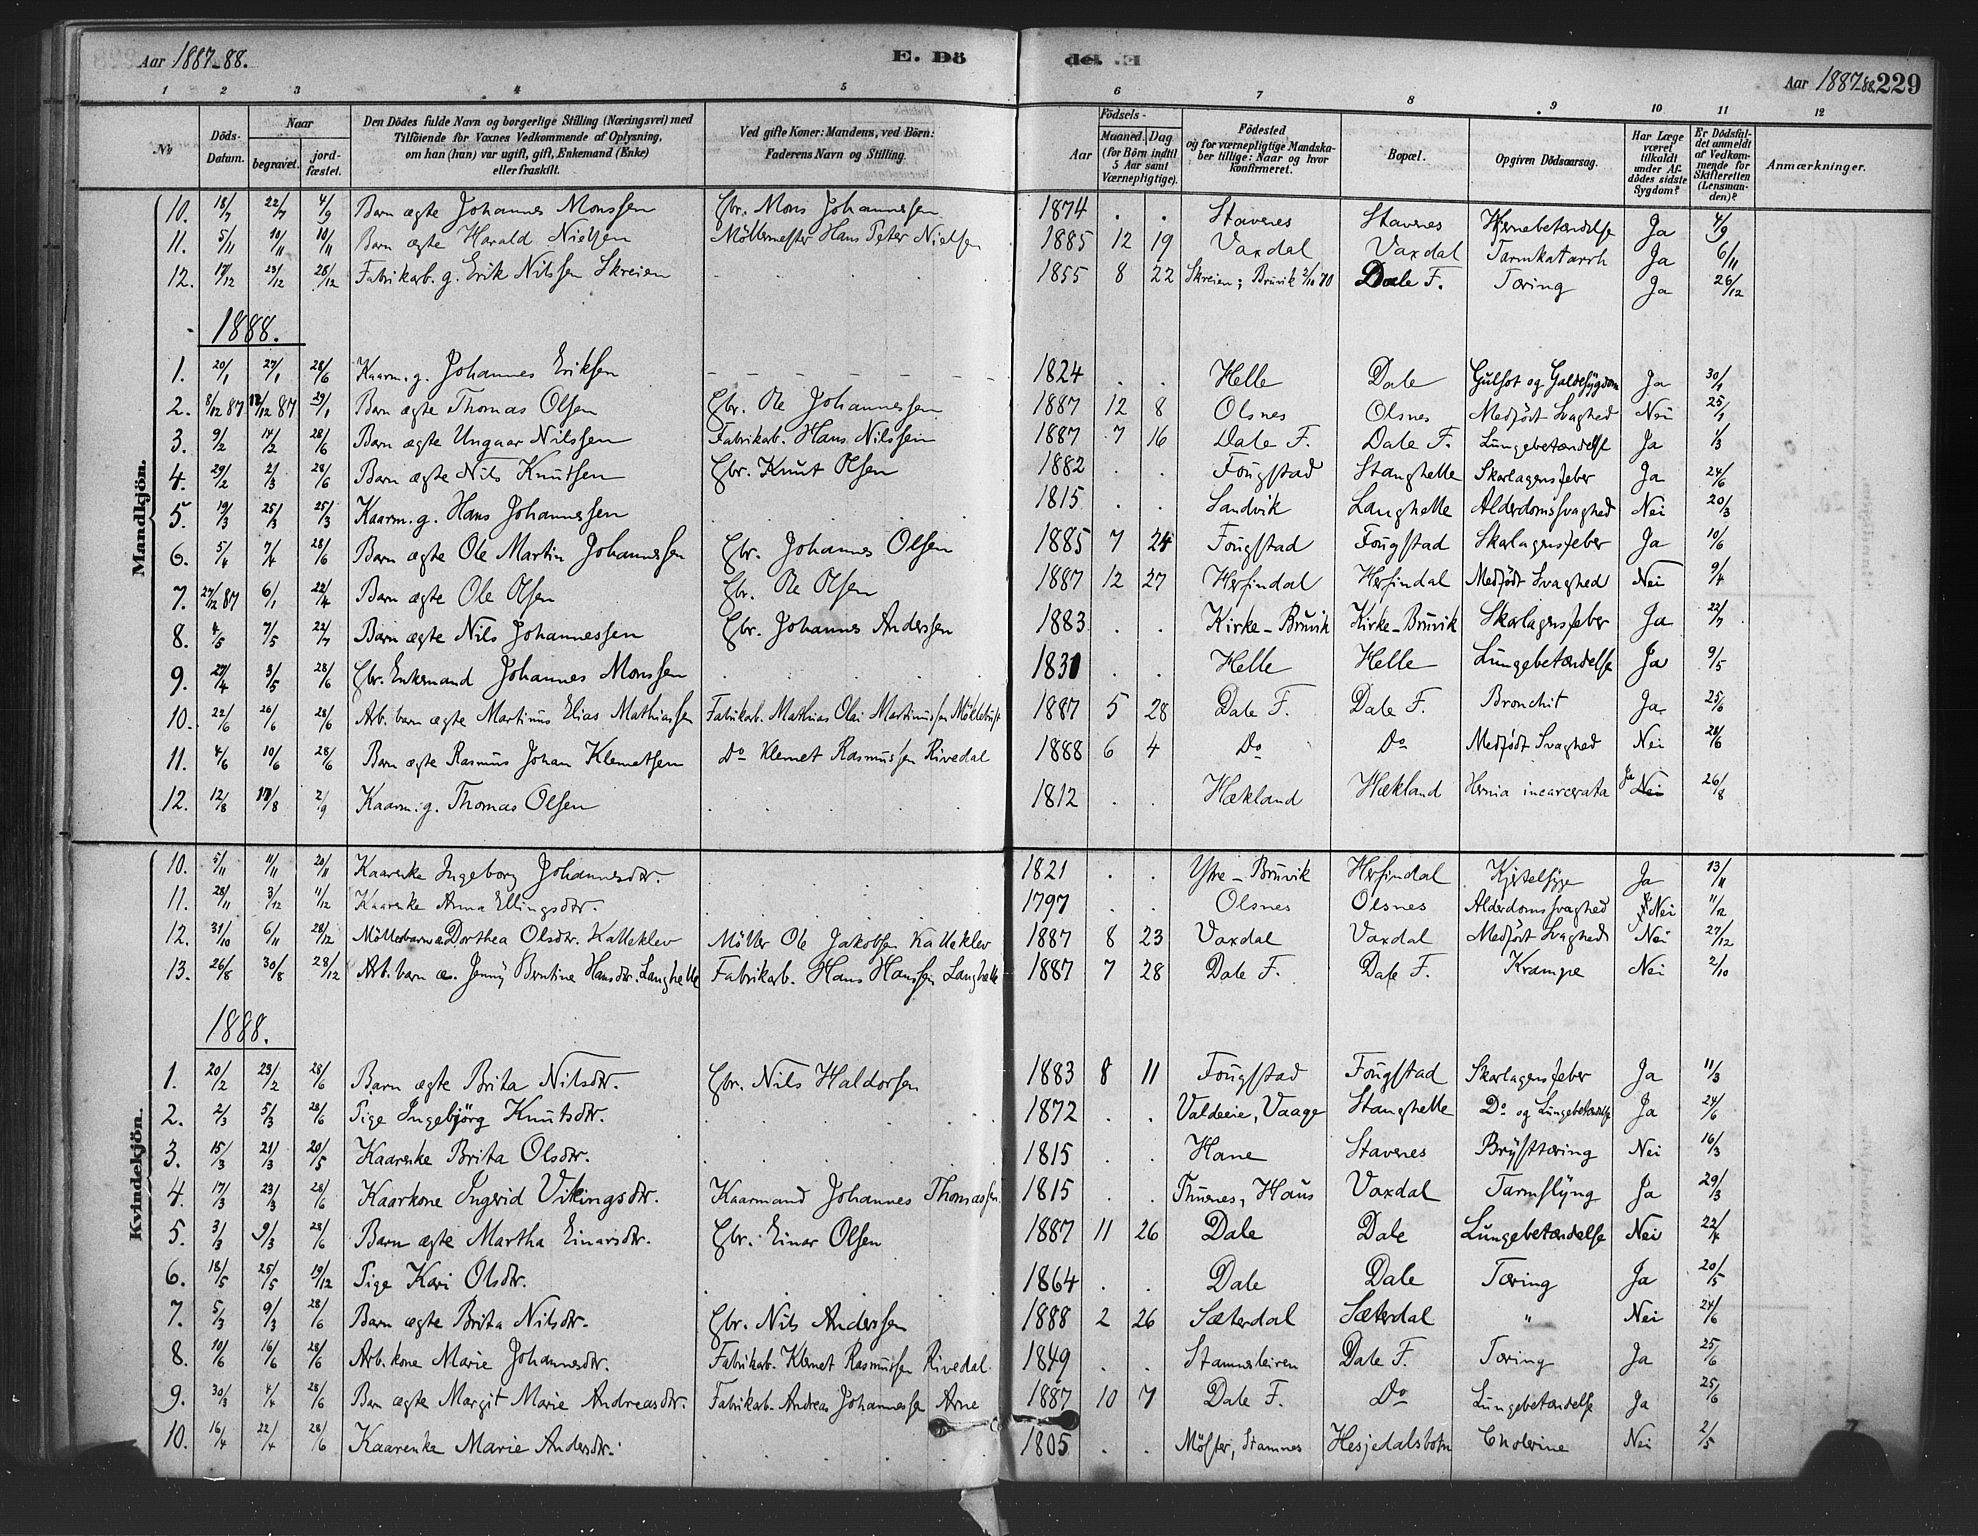 Aar 1887-88.
E. Dö
de. E
Aar 1887-88. 229
1 2 3 4 5 6 7 8 9 10 11 12
№
Döds-Datum.
Naar
begravet.
jord-fæstet.
Den Dödes fulde Navn og borgerlige Stilling (Næringsvei) med Tilföiende for Voxnes Vedkommende af Oplysning, om han (hun) var ugift, gift, Enkemand (Enke) eller fraskilt.
Ved gifte Koner: Mandens, ved Börn: Faderens Navn og Stilling.
Födsels-
Aar
Maaned. Dag (for Börn indtil 5 Aar samt Værnepligtige).
Födested og for værnepligtige Mandskaber tillige: Naar og hvor konfirmeret.
Bopæl.
Opgiven Dödsaarsag.
Har Læge været tilkaldt under Afdödes sidste Sygdom?
Er Dödsfaldet anmeldt af Vedkommende for Skifteretten (Lensmanden)?
Anmærkninger.
Mandkjön.
10. 18/7 22/7 4/9 Barn ægte Johannes Monssen Gbr. Mons Johannessen 1874 . . Stavenes Stavenes Hjernebetændelse Ja 4/9
11. 5/11 10/11 10/11 Barn ægte Harald Nielsen Möllermester Hans Peter Nielsen 1885 12 19 Vaxdal Vaxdal Tarmkatarrh Ja 6/11
12. 17/12 23/12 28/12 Fabrikarb. g. Erik Nilssen Skreien 1855 8 22 Skreien; Bruvik 2/10 70 Dale F. Tæring Ja 26/12
1888.
1. 20/1 27/1 28/6 Kaarm. g. Johannes Eriksen 1824 . . Helle Dale Gulsot og Galdesygdom Ja 30/1
2. 8/12 87 12/12 87 29/1 Barn ægte Thomas Olsen Gbr. Ole Johannessen 1887 12 8 Olsnes Olsnes Medfödt Svaghed Nei 25/1
3. 9/2 14/2 28/6 Barn ægte Ungaar Nilssen Fabrikarb. Hans Nilssen 1887 7 16 Dale F. Dale F. Lungebetændelse Ja 1/3
4. 29/2 2/3 28/6 Barn ægte Nils Knutsen Gbr. Knut Olsen 1882 . . Fougstad Stanghelle Skarlagensfeber Ja 24/6
5. 19/3 25/3 25/3 Kaarm. g. Hans Johannessen 1815 . . Sandvik Langhelle Alderdomssvaghed Nei 20/3
6. 5/4 7/4 28/6 Barn ægte Ole Martin Johannessen Gbr. Johannes Olsen 1885 7 24 Fougstad Fougstad Skarlagensfeber Ja 10/6
7. 27/12 87 6/1 22/4 Barn ægte Ole Olsen Gbr. Ole Olsen 1887 12 27 Herfindal Herfindal Medfödt Svaghed Nei 9/4
8. 4/5 7/5 22/7 Barn ægte Nils Johannessen Gbr. Johannes Anderssen 1883 . . Kirke-Bruvik Kirke-Bruvik Skarlagensfeber Ja 22/7
9. 27/4 3/5 28/6 Gbr. Enkemand Johannes Monssen 1831 . . Helle Helle Lungebetændelse Ja 9/5
10. 22/6 26/6 28/6 Arb. barn ægte Martinus Elias Mathiassen Fabrikarb. Mathias Olai Martinussen Möklebust 1887 5 28 Dale F. Dale F. Bronchit Ja 25/6
11. 4/6 10/6 28/6 Barn ægte Rasmus Johan Klemetsen Do Klemet Rasmussen Rivedal 1888 6 4 Do Do Medfödt Svaghed Nei 28/6
12. 12/8 17/8 2/9 Kaarm. g. Thomas Olsen 1812 . . Hækland Hækland Hernia incarcerata Ja Nei 26/8
Kvindekjön.
10. 5/11 11/11 20/11 Kaarenke Ingeborg Johannesdtr. 1821 . . Ytre-Bruvik Herfindal Kjertelsyge Ja 13/11
11. 28/11 3/12 11/12 Kaarenke Anna Ellingsdtr. 1797 . . Olsnes Olsnes Alderdomssvaghed Nei 11/12
12. 31/10 6/11 28/12 Möllerbarn æ Dorthea Olsdtr. Katteklev Möller Ole Jakobsen Katteklev 1887 8 23 Vaxdal Vaxdal Medfödt Svaghed Nei 27/12
13. 26/8 30/8 28/12 Arb. barn æ. Jenny Bertine Hansdtr. Langhelle Fabrikarb. Hans Hanssen Langhelle 1887 7 28 Dale F. Dale F. Krampe Nei 2/10
1888.
1. 20/2 23/2 28/6 Barn ægte Brita Nilsdtr. Gbr. Nils Haldorsen 1883 8 11 Fougstad Fougstad Skarlagensfeber Ja 11/3
2. 2/3 5/3 28/6 Pige Ingebjörg Knutsdtr. 1872 . . Valdeeie, Vaage Stanghelle Do og Lungebetændelse Ja 24/6
3. 15/3 21/3 20/5 Kaarenke Brita Olsdtr. 1815 . . Hane Stavenes Brysttæring Nei 16/3
4. 17/3 23/3 28/6 Kaarkone Ingerid Vikingsdtr. Kaarmand Johannes Thomassen 1815 . . Thuenes, Haus Vaxdal Tarmslyng Ja 29/3
5. 3/3 9/3 28/6 Barn ægte Martha Einarsdtr. Gbr. Einar Olsen 1887 11 26 Dale Dale Lungebetændelse Nei 22/4
6. 18/5 25/5 19/12 Pige Kari Olsdtr. 1864 . . Dale Dale Tæring Ja 20/5
7. 5/3 9/3 28/6 Barn ægte Brita Nilsdtr. Gbr. Nils Anderssen 1888 2 26 Sæterdal Sæterdal " Nei 24/6
8. 10/6 16/6 28/6 Arb. kone Marie Johannesdtr. Fabrikarb. Klemet Rasmussen Rivedal 1849 . . Stamnesleiren Dale F. Tæring Ja 25/6
9. 30/3 4/4 28/6 Barn ægte Margit Marie Andreasdtr. Fabrikarb. Andreas Johannessen Arne 1887 10 7 Dale F. Do Lungebetændelse Ja 25/6
10. 16/4 22/4 28/6 Kaarenke Marie Andersdtr. 1805 . . Möster, Stamnes Hesjedalsbotn Cholerine Nei 2/5